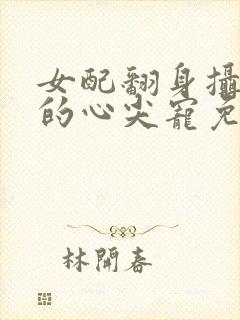 女配翻身攝
的心尖寵免
林開春